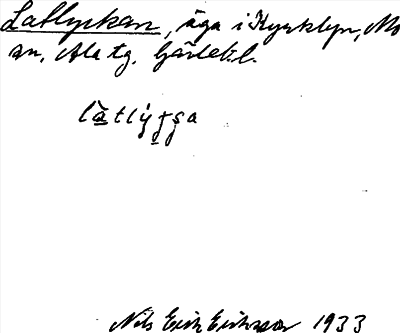 Latlyckan, äga i Kyrkbyn, Mo
sn, Ala tg. Gävleb. l.
làtlyg̣ga
Nils Erik Eriksson 1933